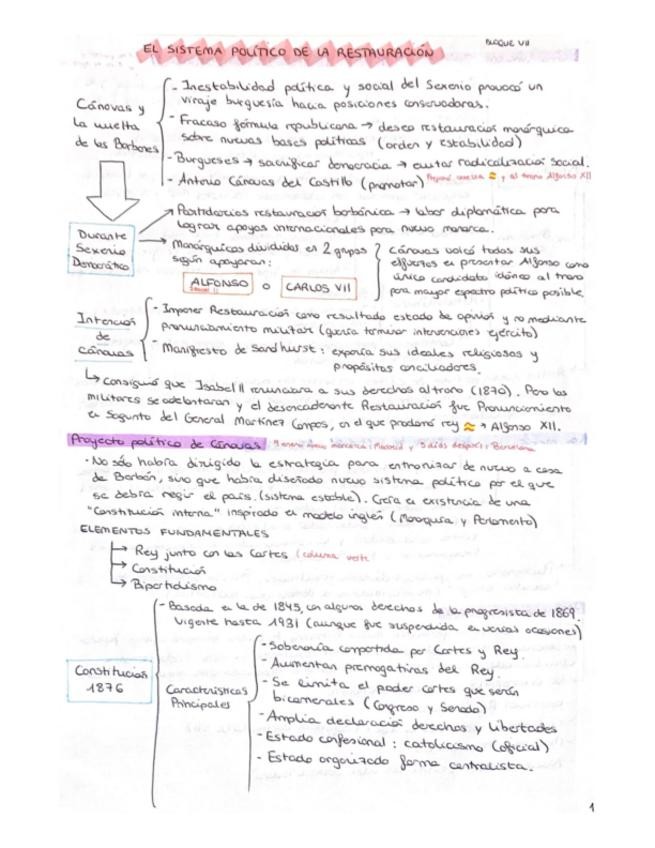 BLOQUE VII
EL SISTEMA POLÍTICO DE LA RESTAURACIÓN
Cánovas y
la vuelta
de los Borbones
- Inestabilidad política y social del Sexenio provocó un
viraje burguesía hacia posiciones conservadoras.
- Fracaso fórmula republicana → deseo restauración monárquica
sobre nuevas bases políticas (orden y estabilidad)
- Burgueses → sacrificar democracia → evitar radicalización social.
- Antonio Cánovas del Castillo (promotor)
y al trono Alfonso XII
Durante
Sexenio
Democrático
→ Partidarios restauración borbónica → labor diplomática para
lograr apoyos internacionales para nuevo monarca.
→ Monárquicos divididos en 2 grupos
según apoyaran:
ALFONSO o CARLOS VII
Cánovas volcó todos sus
esfuerzos en presentar Alfonso como
único candidato idóneo al trono
para mayor espectro político posible.
Intención
de
Cánovas
- Imponer Restauración como resultado estado de opinión y no mediante
pronunciamiento militar (quería terminar intervenciones ejército)
- Manifiesto de Sandhurst: exponía sus ideales religiosos y
propósitos conciliadores.
↳ Consiguió que Isabel II renunciara a sus derechos al trono (1870). Pero los
militares se adelantaran y el desencadenante Restauración fue Pronunciamiento
en Sagunto del General Martínez Campos, en el que proclamó rey ≈ → Alfonso XII.
Proyecto político de Cánovas
9 enero nuevo monarca: Madrid y 5 días después: Barcelona
· No sólo había dirigido la estrategia para entronizar de nuevo a casa
de Borbón, sino que había diseñado nuevo sistema político por el que
se debía regir el país. (sistema estable). Creía en existencia de una
"Constitución interna" inspirado en modelo inglés (Monarquía y Parlamento)
ELEMENTOS FUNDAMENTALES
→ Rey junto con las Cortes (columna
→ Constitución
→ Bipartidismo
Constitución
1876
- Basada en la de 1845, con algunos derechos de la progresista de 1869.
Vigente hasta 1931 (aunque fue suspendida en varias ocasiones)
Características
Principales
- Soberanía compartida por Cortes y Rey.
- Aumentan prerrogativas del Rey.
- Se limita el poder cortes que serán
bicamerales (Congreso y Senado)
- Amplia declaración derechos y libertades
- Estado confesional: catolicismo (oficial)
- Estado organizado forma centralista.
1